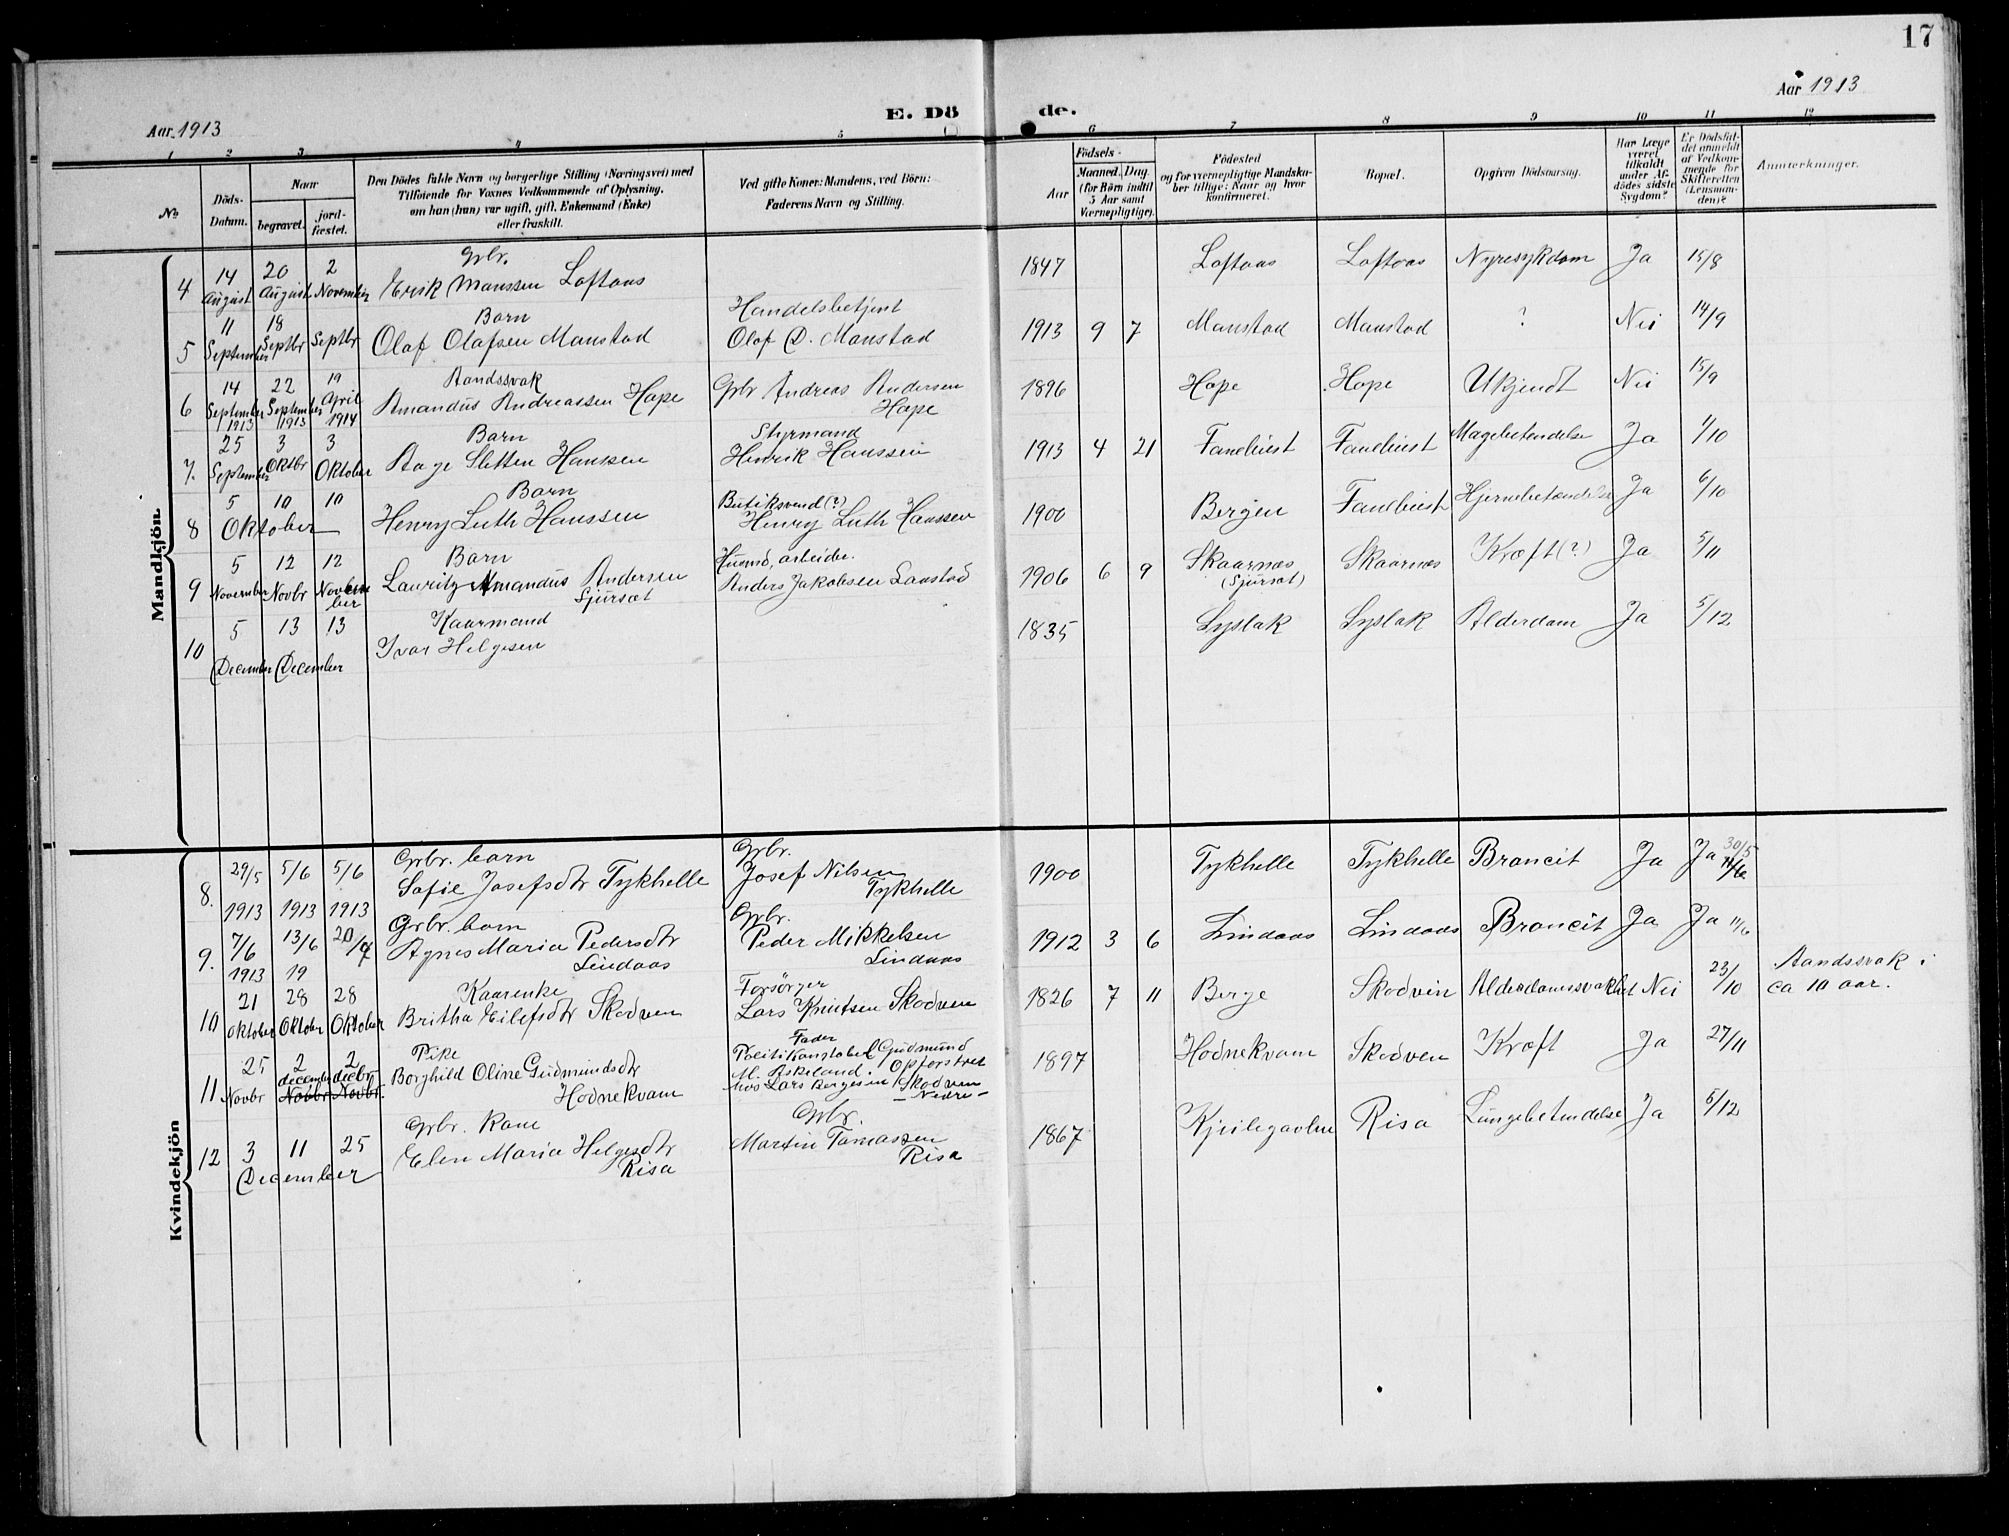 17
Aar 1913
E. Dö de.
Aar 1913
1 2 3 4 5 6 7 8 9 10 11 12
No
Döds-
Datum.
Naar
begravet.
jord-
fæstet.
Den Dödes fulde Navn og borgerlige Stilling (Næringsvei) med
Tilföiende for Voxnes Vedkommende af Oplysning,
om han (hun) var ugift, gift, Enkemand (Enke)
eller fraskilt.
Ved gifte Koner: Mandens, ved Börn:
Faderens Navn og Stilling.
Födsels-
Aar
Maaned. Dag.
(for Börn indtil
5 Aar samt
Værnepligtige).
Födested
og for værnepligtige Mandska-
ber tillige: Naar og hvor
konfirmeret.
Bopæl.
Opgiven Dödsaarsag.
Har Læge
været
tilkaldt
under Af-
dödes sidste
Sygdom?
Er Dödsfal-
det anmeldt
af Vedkom-
mende for
Skifteretten
(Lensman-
den)?
Anmærkninger.
Mandkjön.
Gbr.
4 14 August 20 August 2 November Erik Monssen Loftaas 1847 Loftaas Loftaas Nyresykdom Ja 15/8
Barn Handelsbetjent
5 11 September 18 Septbr Septbr Olaf Olafsen Monstad Olaf D. Monstad 1913 9 7 Monstad Monstad ? Nei 14/9
Aandssvak
6 14 September 1913 22 September 1913 19 April 1914 Amandus Andreassen Hope Gbr Andreas Andersen Hope 1896 Hope Hope Ukjendt Nei 15/9
Barn Styrmand
7. 25 September 3 Oktbr 3 Oktober Aage Sletten Hanssen Henrik Hanssen 1913 4 21 Fanebust Fanebust Mavebetendelse Ja 1/10
Barn Butiksvend (?)
8 5 10 10 Oktober Henry Luth Hanssen Henry Luth Hanssen 1900 Bergen Fanebust Hjernebetændelse Ja 6/10
Barn Husmd, arbeider.
9 5 November 12 Novbr 12 November Lauritz Amandus Andersen Sjursæt Anders Jakobsen Lanstad 1906 6 9 Skaarnes (Sjursæt) Skaarnes Kræft (?) Ja 5/11
Kaarmand
10 5 December 13 December 13 Ivar Helgesen 1835 Lyslak Lyslak Alderdom Ja 5/12
Kvindekjön
Gbr. barn Gbr.
8. 29/5 1913 5/6 1913 5/6 1913 Sofie Josefsdtr Tykhelle Josef Nilsen Tykhelle 1900 Tykhelle Tykhelle Broncit Ja Ja 30/5
Gbr. barn Gbr.
9. 7/6 1913 13/6 19 20/7 Agnes Maria Pedersdtr Lindaas Peder Mikkelsen Lindaas 1912 3 6 Lindaas Lindaas Broncit Ja Ja 11/6
Kaarenke Forsørger
10 21 Oktober 28 Oktober 28 Oktober Britha Eilefsdtr Skodven Lars Knutsen Skodven 1826 7 11 Berge Skodvin Alderdomssvakhet Nei 23/10 Aandssvak i
ca 10 aar.
Pike Fader
11 25 Novbr 2 december Novbr 2 decbr Novbr. Borghild Oline Gudmundsdtr Hodnekvam Politikonstabel Gudmund
M. Askeland. Opfostret
hos Lars Bergesen Skodven
- Nedre -
1897 Hodnekvam Skodven Kræft Ja 27/11
Gbr. kone Gbr.
12 3 11 25 December Elen Maria Helgesdtr Risa Martin Tomassen Risa 1867 Risa Lungebetendelse Ja 5/12